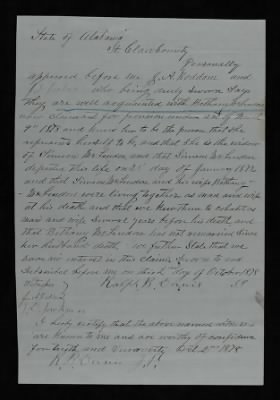 State of Alabama
St Clair County
Personally
appeared before me J. A. Weddom and
who being duly sworn Says
they are well acquainted with Bethany McLendon
now claimed for pension under act of March
9th 1878 and know her to be the person that she
represents herself to be, and that she is the widow
of Simeon McLendon and that Simeon McLendon
departed this life on 2nd day of January 1872
and that Simeon McLendon and his wife Bethany
McLendon were living together as man and wife
at his death and that we knew them to cohabit as
man and wife Several years before his death, and
that Bethany McLendon has not remarried since
her husbands death. we further State that we
have no interest in this claim. Sworn to and
Subscribed before me on this day of October 1878
Ralph R. J.P.
I hereby certify that the above named witnesses
are known to me and are worthy of confidence
for truth and veracity Oct 2nd 1878
J.P.